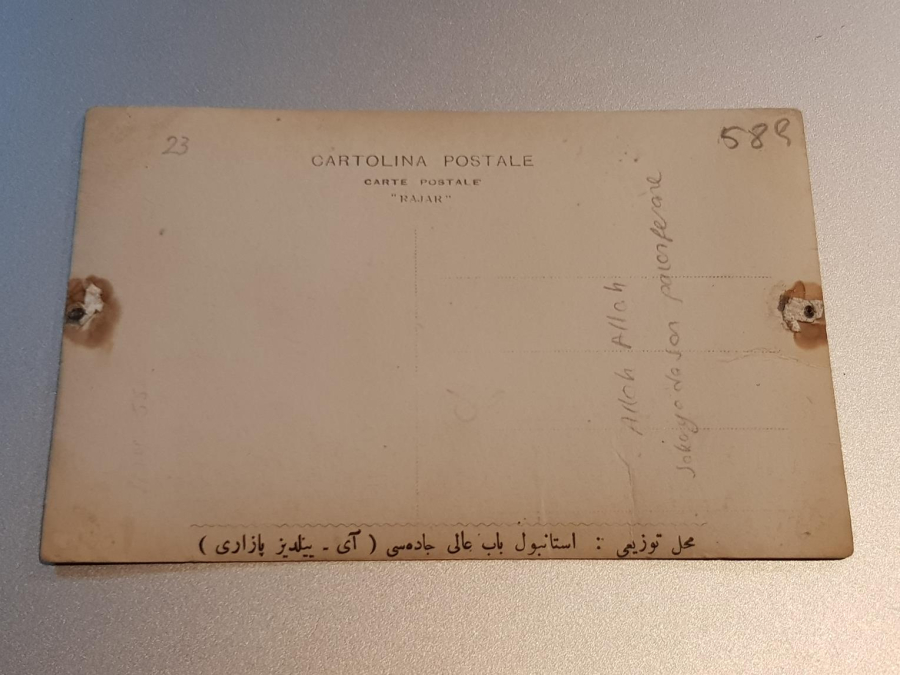 23
589
CARTOLINA POSTALE
CARTE POSTALE
"RAJAR"
Allah Allah
محل توزیعی : استانبول باب عالی جاده‌سی ( آی ـ ییلدیز پازاری )